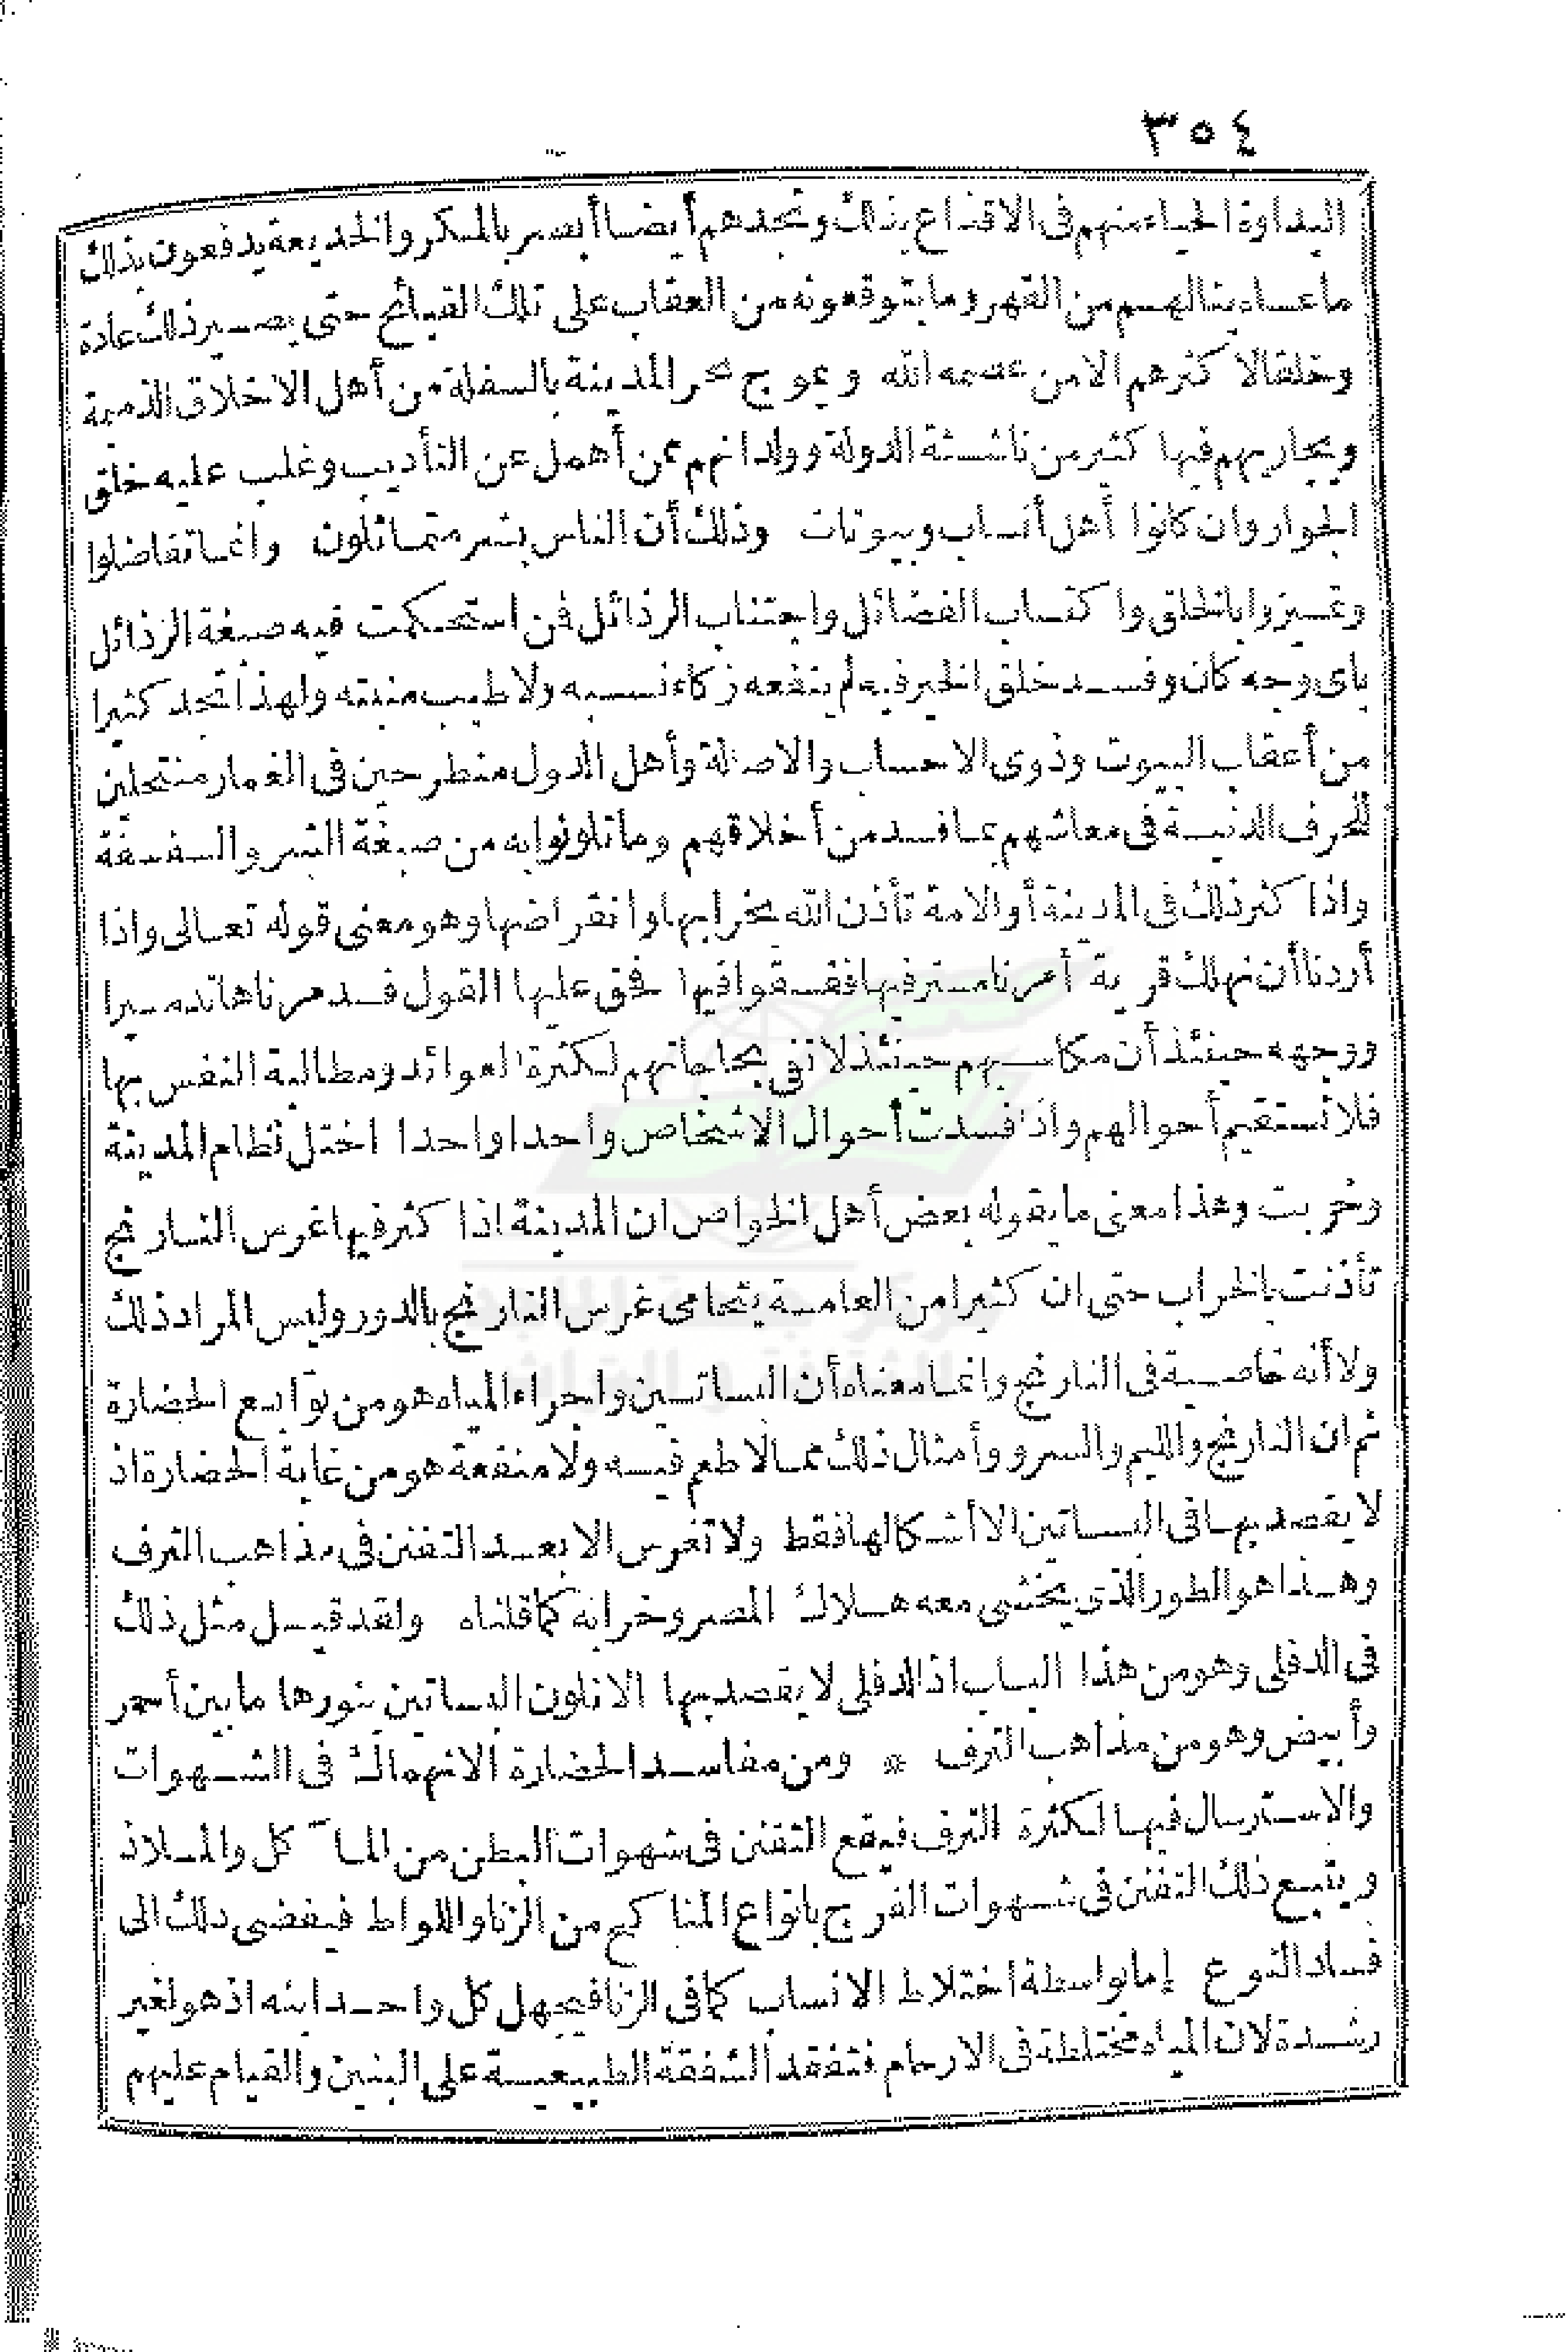 ٣٥٤
البداوة الحياء منهم فى الاقذاع بذلك وتجدهم أيضا أبصر بالمكر والخديعة يدفعون بذلك
ما عساه ينالهم من القهر وما يتوقعونه من العقاب على تلك القبائح حتى يصير ذلك عادة
وخلقا لا كثرهم الا من عصمه الله ويموج بحر المدينة بالسفلة من أهل الاخلاق الذميمة
ويجاريهم فيها كثير من ناشئة الدولة وولدانهم ممن أهمل عن التأديب وغلب عليه خلق
الجوار وان كانوا أهل أنساب وبيوتات وذلك أن الناس بشر متماثلون وانما تفاضلوا
وتميزوا بالخلق واكتساب الفضائل واجتناب الرذائل فمن استحكمت فيه صبغة الرذائل
باى وجه كان وفسد خلق الخير فيه لم ينفعه زكاء نسبه ولا طيب منبته ولهذا تجد كثيرا
من أعقاب البيوت وذوى الاحساب والاصالة وأهل الدول منطرحين فى الغمار منتحلين
للحرف الدنية فى معاشهم بما فسد من أخلاقهم وما تلونوا به من صبغة الشر والسفسفة
واذا كثر ذلك فى المدينة أو الامة تأذن الله بخرابها وانقراضها وهو معنى قوله تعالى واذا
أردنا أن نهلك قرية أمرنا مترفيها ففسقوا فيها فحق عليها القول فدمرناها تدميرا
ووجهه حينئذ أن مكاسبهم حينئذ لا تفى بحاجاتهم لكثرة العوائد ومطالبة النفس بها
فلا تستقيم أحوالهم واذا فسدت أحوال الاشخاص واحدا واحدا اختل نظام المدينة
وخربت وهذا معنى ما يقوله بعض أهل الخواص ان المدينة اذا كثر فيها غرس النارنج
تأذنت بالخراب حتى ان كثيرا من العامة يتحامى غرس النارنج بالدور وليس المراد ذلك
ولا أنه خاصية فى النارنج وانما معناه أن البساتين واجراء المياه هو من توابع الحضارة
ثم ان النارنج والليم والسرو وأمثال ذلك مما لا طعم فيه ولا منفعة هو من غاية الحضارة اذ
لا يقصد بها فى البساتين الا أشكالها فقط ولا تغرس الا بعد التفنن فى مذاهب الترف
وهذا هو الطور الذى يخشى معه هلاك المصر وخرابه كما قلناه ولقد قيل مثل ذلك
فى الدفلى وهو من هذا الباب اذ الدفلى لا يقصد بها الا تلون البساتين بنورها ما بين أحمر
وأبيض وهو من مذاهب الترف * ومن مفاسد الحضارة الانهماك فى الشهوات
والاسترسال فيها لكثرة الترف فيقع التفنن فى شهوات البطن من المآكل والملاذ
ويتبع ذلك التفنن فى شهوات الفرج بانواع المناكح من الزنا واللواط فيفضى ذلك الى
فساد النوع إما بواسطة اختلاط الانساب كما فى الزنا فيجهل كل واحد ابنه اذ هو لغير
رشدة لان المياه مختلطة فى الارحام فتفقد الشفقة الطبيعية على البنين والقيام عليهم